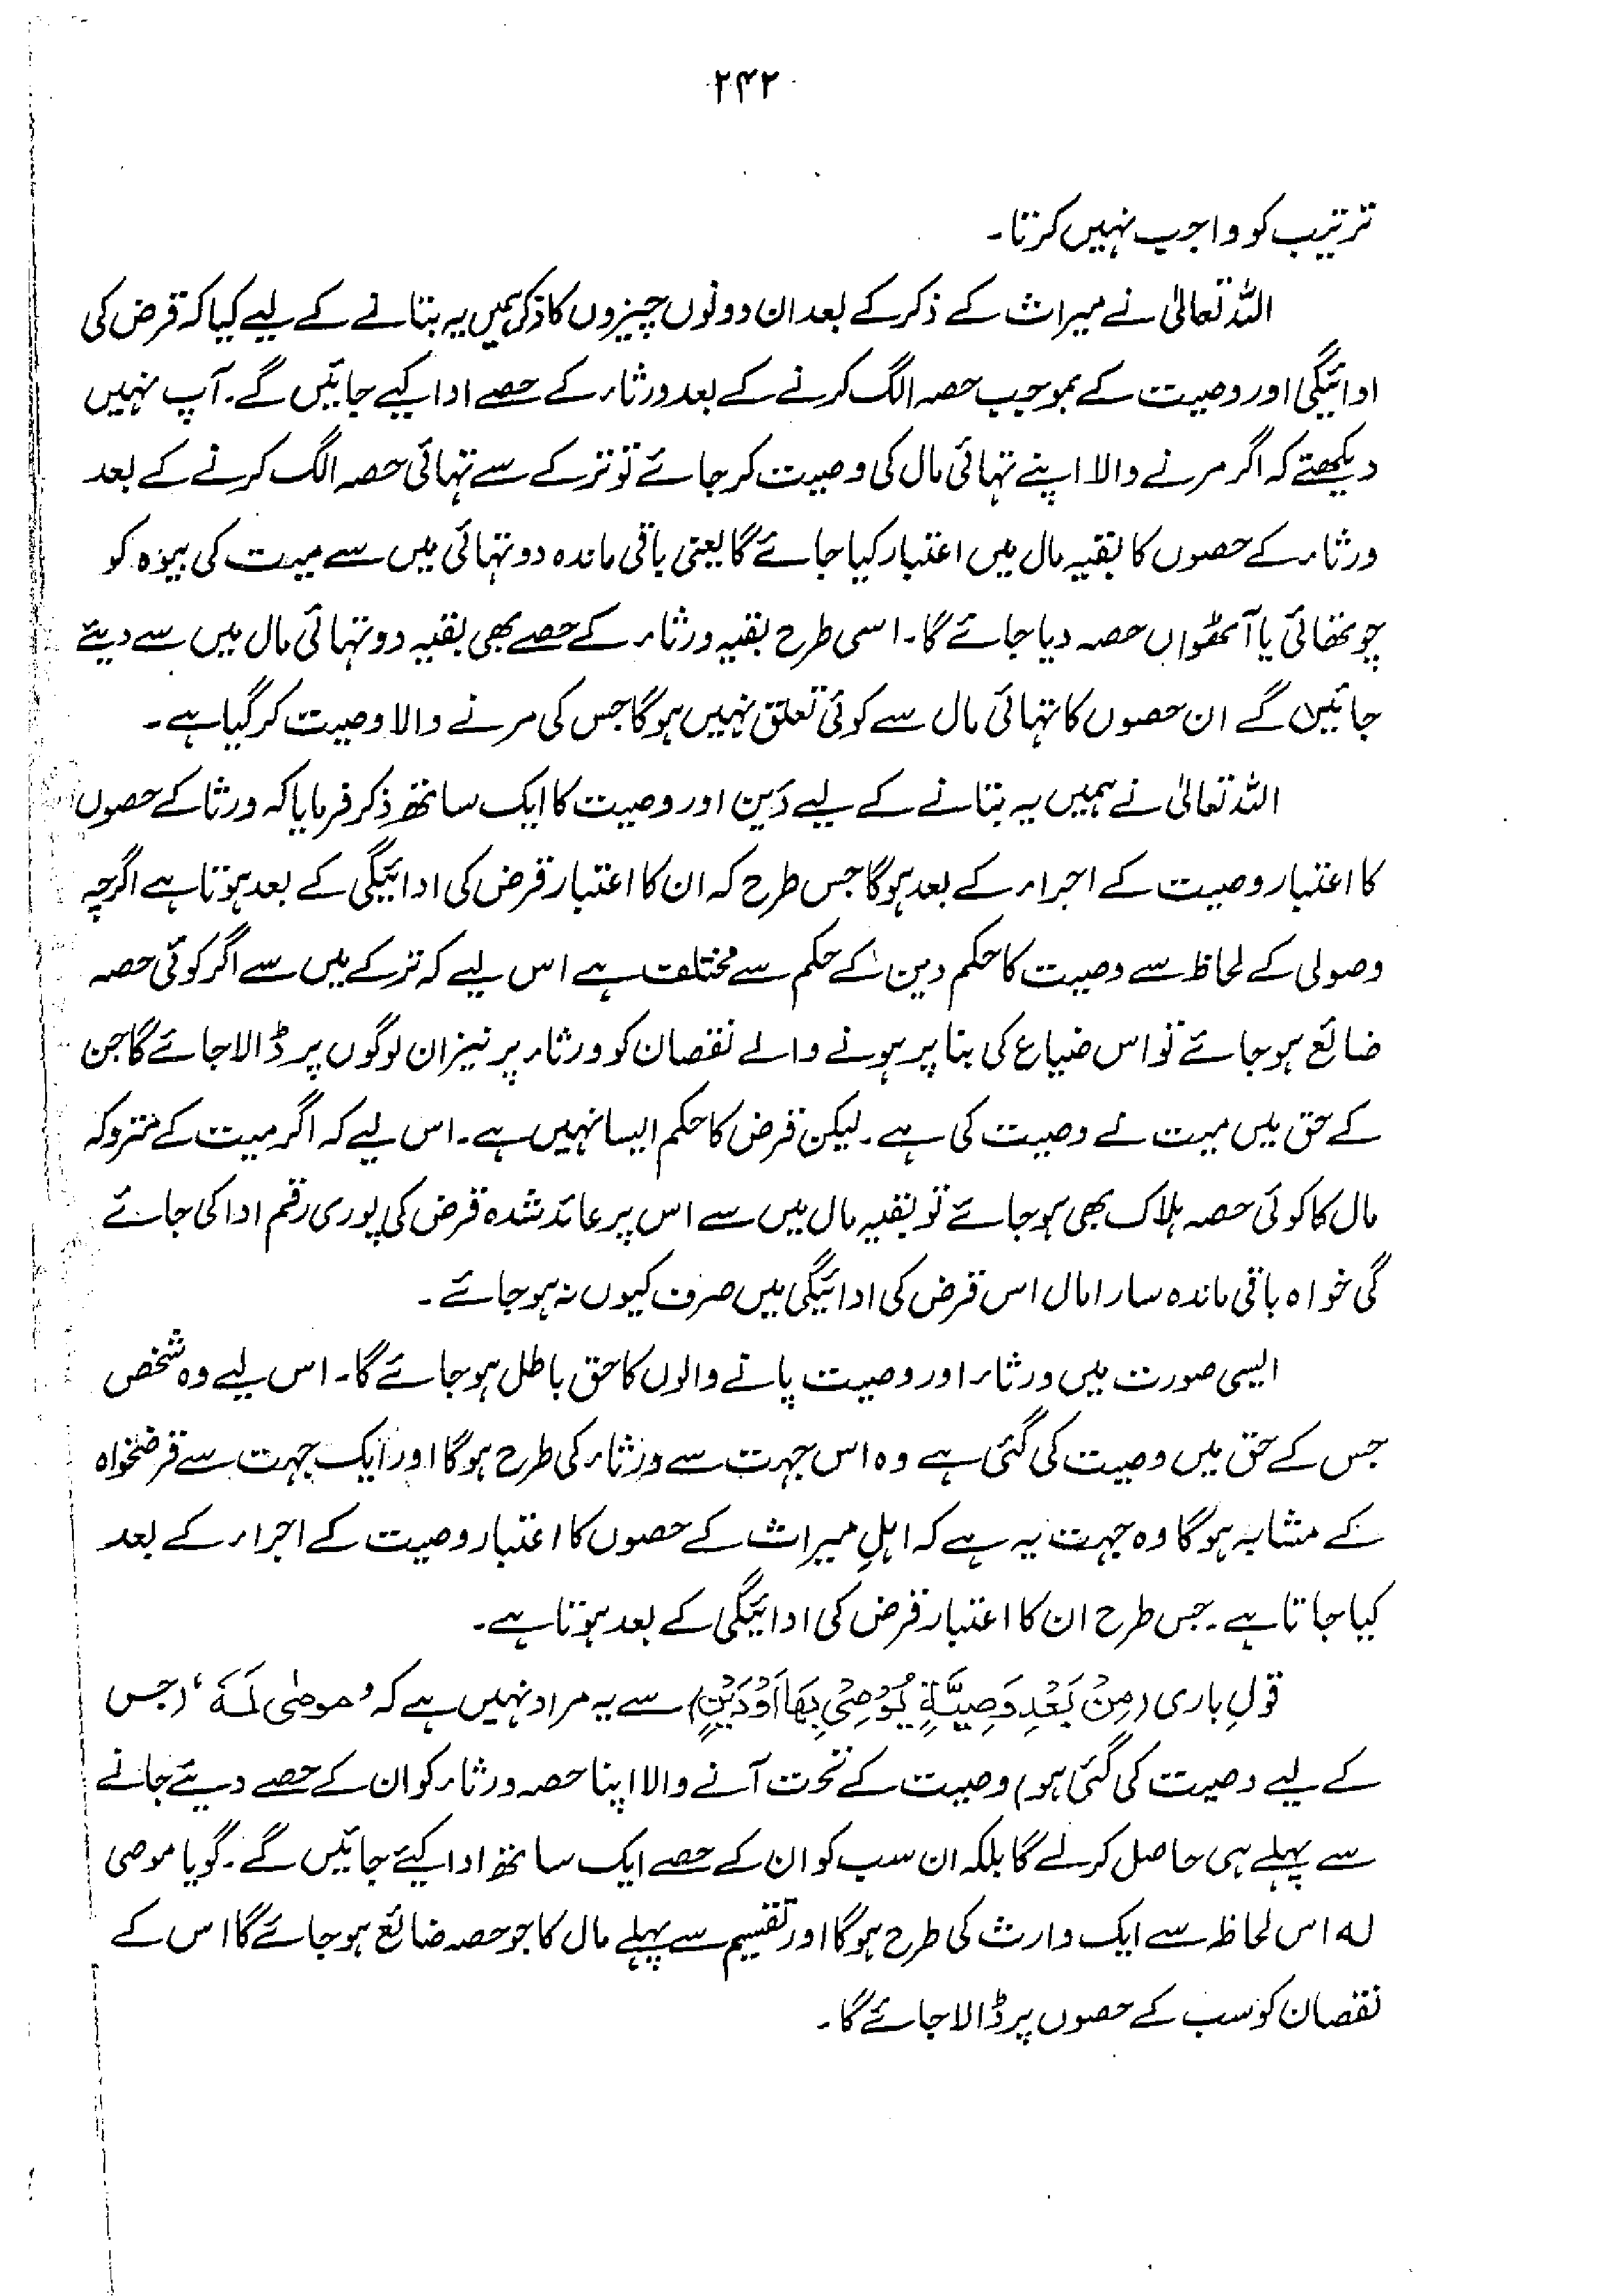 ۲۴۲
ترتیب کو واجب نہیں کرتا۔
اللہ تعالیٰ نے میراث کے ذکر کے بعد ان دونوں چیزوں کا ذکر ہمیں یہ بتانے کے لیے کیا کہ قرض کی
ادائیگی اور وصیت کے بموجب حصہ الگ کرنے کے بعد ورثاء کے حصے ادا کیے جائیں گے۔ آپ نہیں
دیکھتے کہ اگر مرنے والا اپنے تہائی مال کی وصیت کر جائے تو ترکے سے تہائی حصہ الگ کرنے کے بعد
ورثاء کے حصوں کا بقیہ مال میں اعتبار کیا جائے گا یعنی باقی ماندہ دو تہائی میں سے میت کی بیوہ کو
چوتھائی یا آٹھواں حصہ دیا جائے گا۔ اسی طرح بقیہ ورثاء کے حصے بھی بقیہ دو تہائی مال میں سے دیئے
جائیں گے ان حصوں کا تہائی مال سے کوئی تعلق نہیں ہوگا جس کی مرنے والا وصیت کر گیا ہے۔
اللہ تعالیٰ نے ہمیں یہ بتانے کے لیے دَین اور وصیت کا ایک ساتھ ذکر فرمایا کہ ورثا کے حصوں
کا اعتبار وصیت کے اجراء کے بعد ہوگا جس طرح کہ ان کا اعتبار قرض کی ادائیگی کے بعد ہوتا ہے اگرچہ
وصولی کے لحاظ سے وصیت کا حکم دین کے حکم سے مختلف ہے اس لیے کہ ترکے میں سے اگر کوئی حصہ
ضائع ہو جائے تو اس ضیاع کی بنا پر ہونے والے نقصان کو ورثاء پر نیز ان لوگوں پر ڈالا جائے گا جن
کے حق میں میت نے وصیت کی ہے۔ لیکن قرض کا حکم ایسا نہیں ہے۔ اس لیے کہ اگر میت کے متروکہ
مال کا کوئی حصہ ہلاک بھی ہو جائے تو بقیہ مال میں سے اس پر عائد شدہ قرض کی پوری رقم ادا کی جائے
گی خواہ باقی ماندہ سارا مال اس قرض کی ادائیگی میں صرف کیوں نہ ہو جائے۔
ایسی صورت میں ورثاء اور وصیت پانے والوں کا حق باطل ہو جائے گا۔ اس لیے وہ شخص
جس کے حق میں وصیت کی گئی ہے وہ اس جہت سے ورثاء کی طرح ہوگا اور ایک جہت سے قرضخواہ
کے مشابہ ہوگا وہ جہت یہ ہے کہ اہلِ میراث کے حصوں کا اعتبار وصیت کے اجراء کے بعد
کیا جاتا ہے۔ جس طرح ان کا اعتبار قرض کی ادائیگی کے بعد ہوتا ہے۔
قولِ باری (مِنْ بَعْدِ وَصِیَّۃٍ یُوْصِیْ بِھَا اَوْدَیْنٍ) سے یہ مراد نہیں ہے کہ ’موصٰی لَہٗ‘ (جس
کے لیے وصیت کی گئی ہو) وصیت کے تحت آنے والا اپنا حصہ ورثاء کو ان کے حصے دیئے جانے
سے پہلے ہی حاصل کر لے گا بلکہ ان سب کو ان کے حصے ایک ساتھ ادا کیئے جائیں گے۔ گویا موصی
لہ اس لحاظ سے ایک وارث کی طرح ہوگا اور تقسیم سے پہلے مال کا جو حصہ ضائع ہو جائے گا اس کے
نقصان کو سب کے حصوں پر ڈالا جائے گا۔